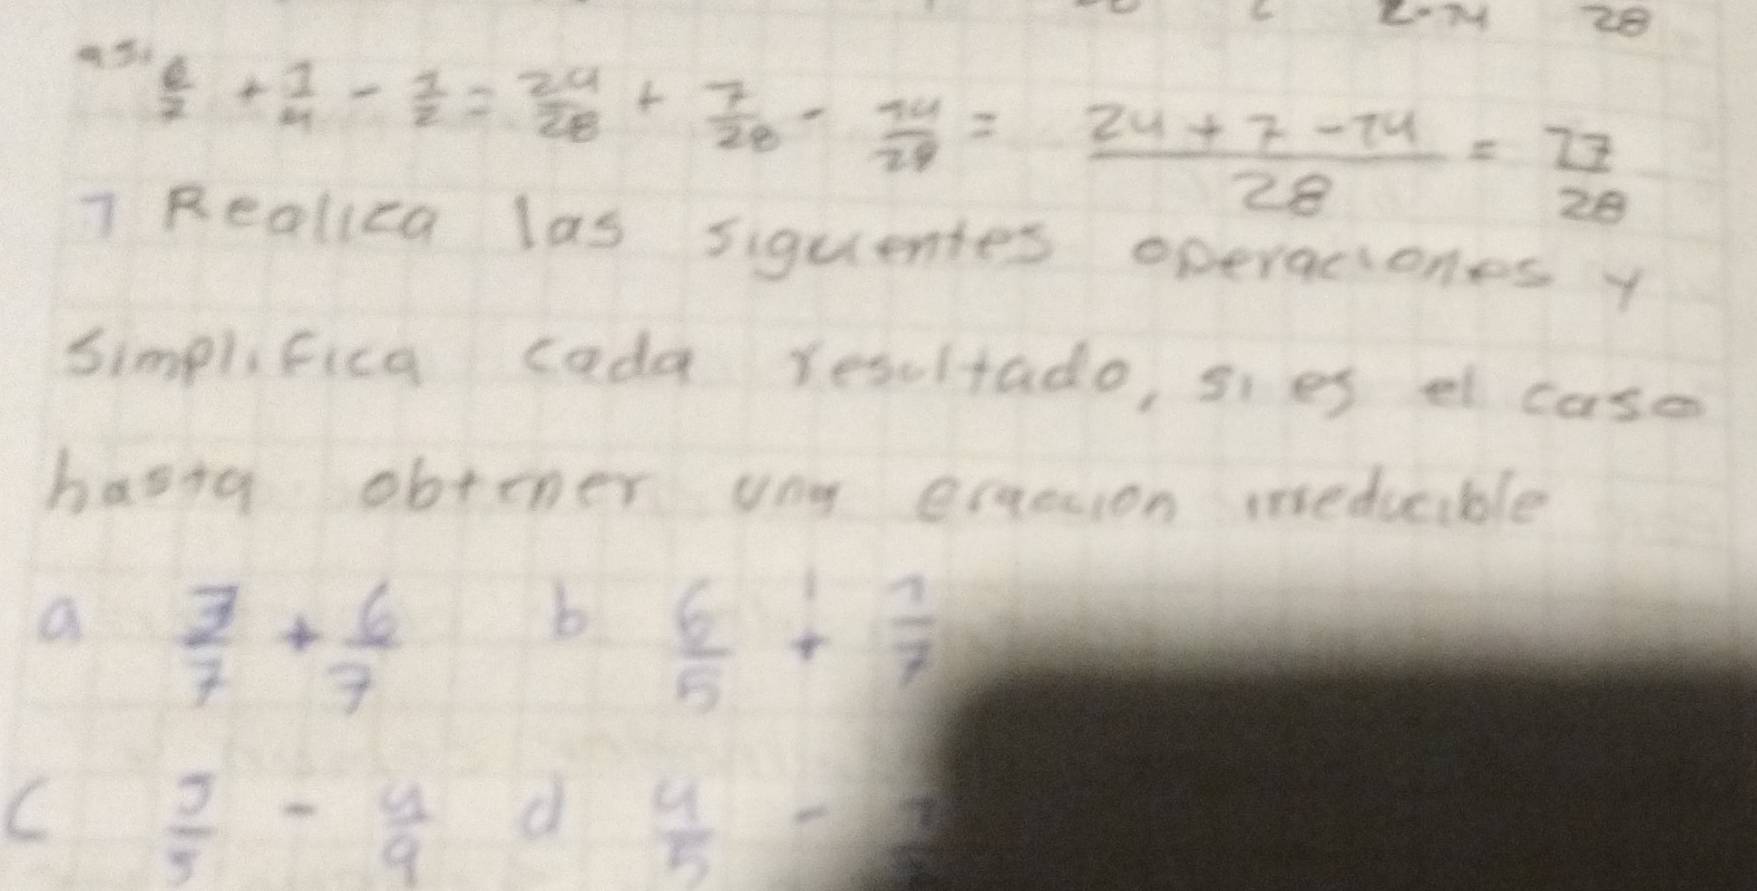 28
así 6/7 + 1/4 - 1/2 = 24/28 + 7/28 - 14/28 = 24 + 7 - 14/28 = 17/28
1 Realiza las siguientes operaciones y
simplifica cada resultado, si es el caso
hasta obtener una fraccion irreducible
a /7 + 6/7 b 6/5 + 1/7
c /5 - 4/9 d 4/5 -